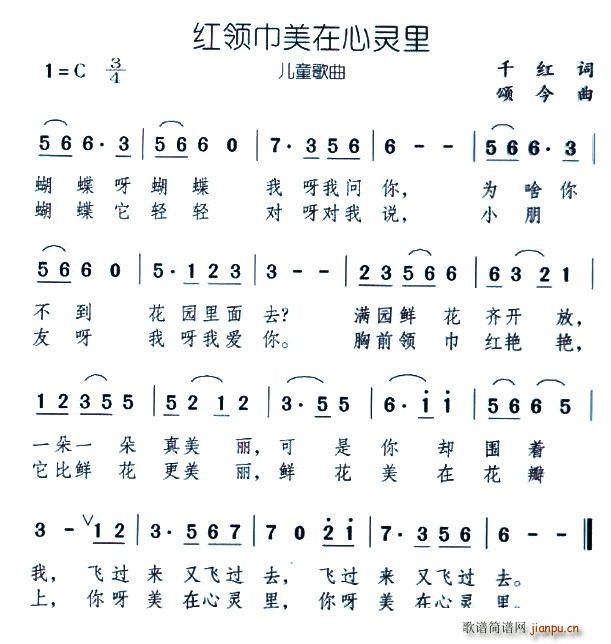 红领巾美在心灵里
1=C 3/4 儿童歌曲 千红 词
颂今 曲
5 6 6· 3 | 5 6 6 0 | 7· 3 5 6 | 6 - - | 5 6 6· 3 |
蝴蝶呀蝴蝶 我呀我问你, 为啥你
蝴蝶它轻轻 对呀对我说, 小朋
5 6 6 0 | 5· 1 2 3 | 3 - - | 2 3 5 6 6 | 6 3 2 1 |
不到 花园里面去? 满园鲜花齐开放,
友呀 我呀我爱你。 胸前领巾红艳艳,
1 2 3 5 5 | 5 2 1 2 | 3· 5 5 | 6· i i | 5 6 6 5 |
一朵一朵真美丽,可是你却围着
它比鲜花更美丽,鲜花美在花瓣
3 - ∨ 1 2 | 3· 5 6 7 | 7 0 2 i | 7· 3 5 6 | 6 - - ‖
我, 飞过来又飞过去, 飞过来又飞过去。
上, 你呀美在心灵里,你呀美在心灵里。
歌谱简谱网
jianpu.cn